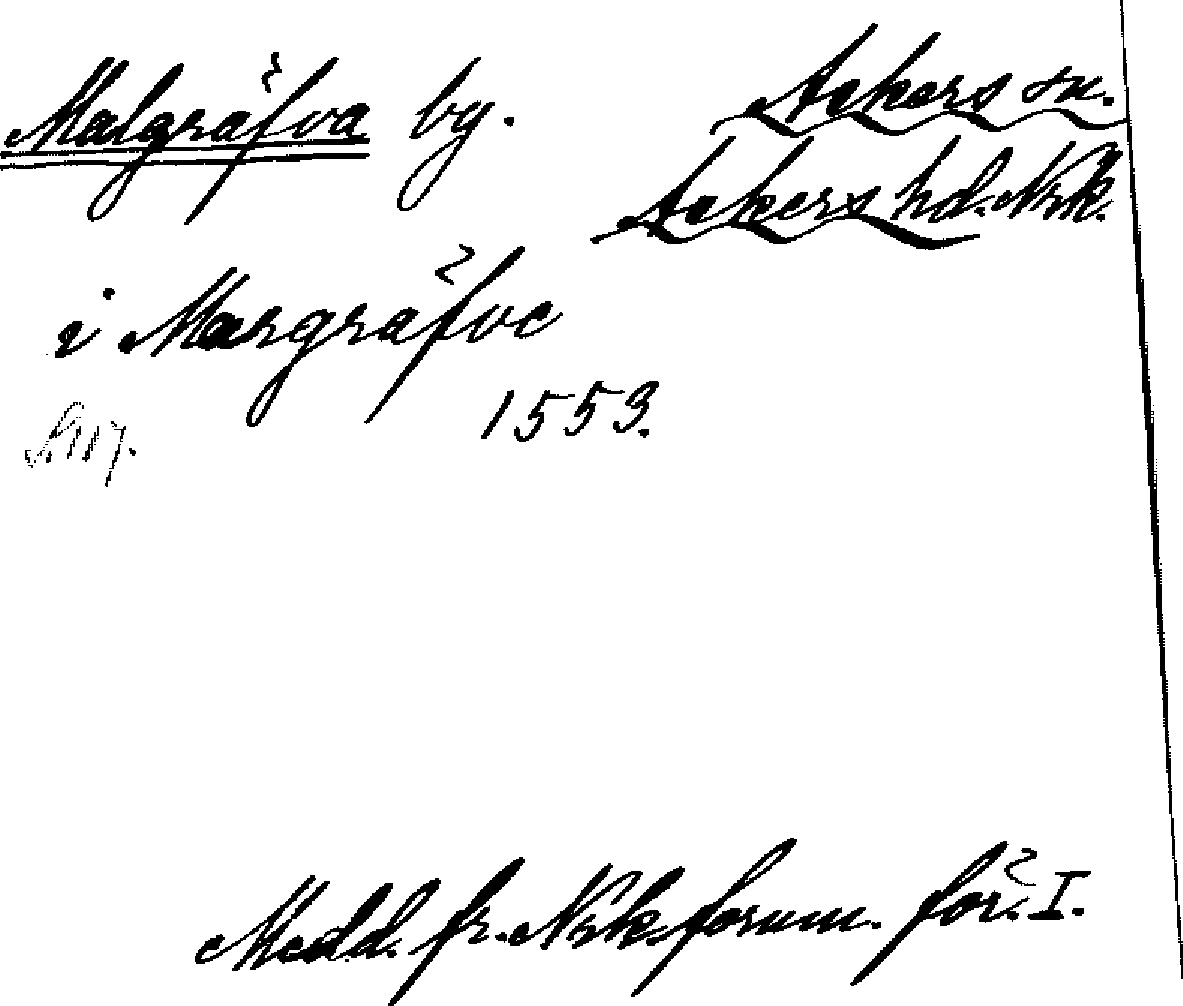 Malgräfva by. Askers sn.
Askers hd. Nrk.
i Margräfve
1553.
S. 117.
Medd. fr. Nrk. fornm. för. I.